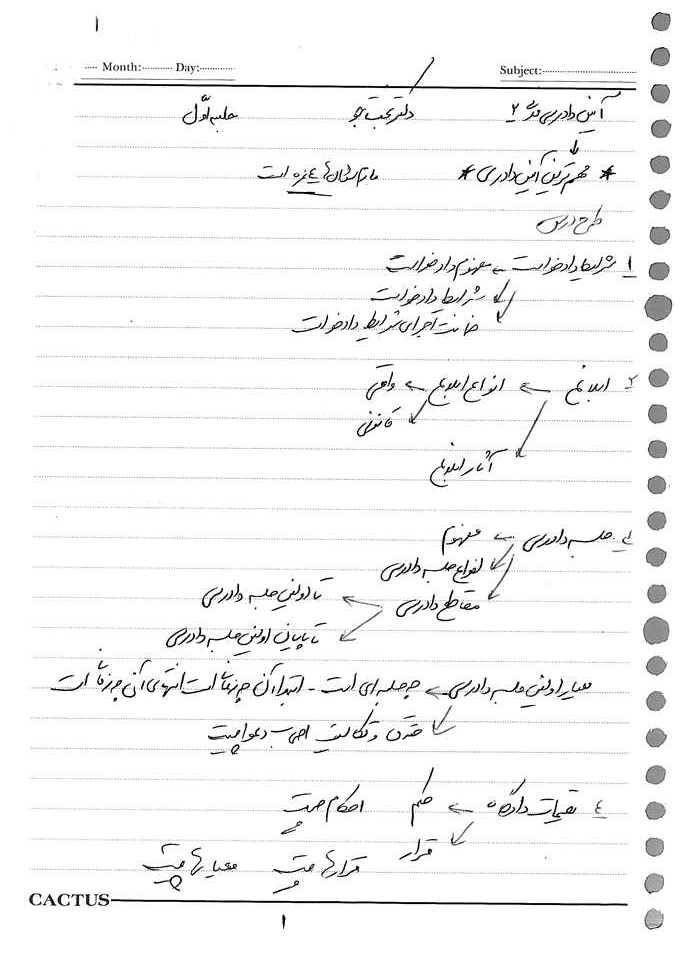 Month: Day: Subject:
آئین دادرسی مدنی ۲ دکتر محبت جو جلسه اوّل
* مهم ترین آئین دادرسی *
طرح درس
۱ شرایط دادخواست ← مفهوم دادخواست
شرایط دادخواست
ضمانت اجرای شرایط دادخواست
۲ ابلاغ ← انواع ابلاغ ← واقعی
قانونی
آثار ابلاغ
۳ جلسه دادرسی ← مفهوم
انواع جلسه دادرسی
مقاطع دادرسی ← تا اولین جلسه دادرسی
تا پایان اولین جلسه دادرسی
معیار اولین جلسه دادرسی ← چه جلسه ای است - ابتدا آن چه زمانی است انتهای آن چه زمانی است
حقوق و تکالیف اصحاب دعوا چیست
٤ تصمیمات دادگاه ← حکم احکام چیست
قرار قرارها چیست معیارها چیست
CACTUS